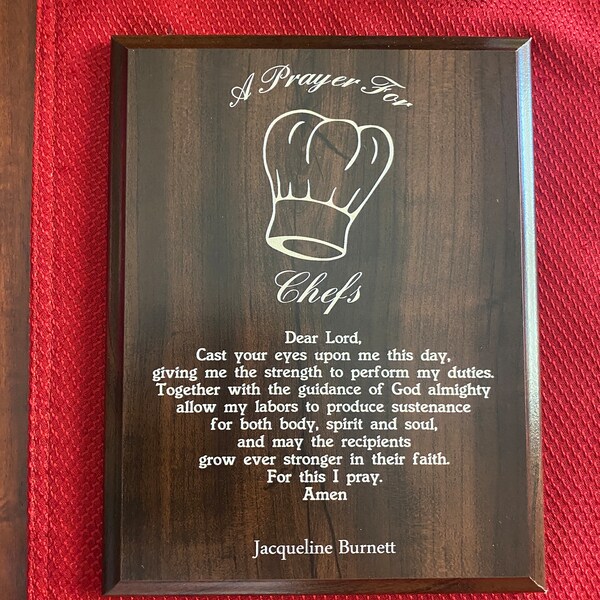 A Prayer For
Chefs
Dear Lord,
Cast your eyes upon me this day,
giving me the strength to perform my duties.
Together with the guidance of God almighty
allow my labors to produce sustenance
for both body, spirit and soul,
and may the recipients
grow ever stronger in their faith.
For this I pray.
Amen
Jacqueline Burnett